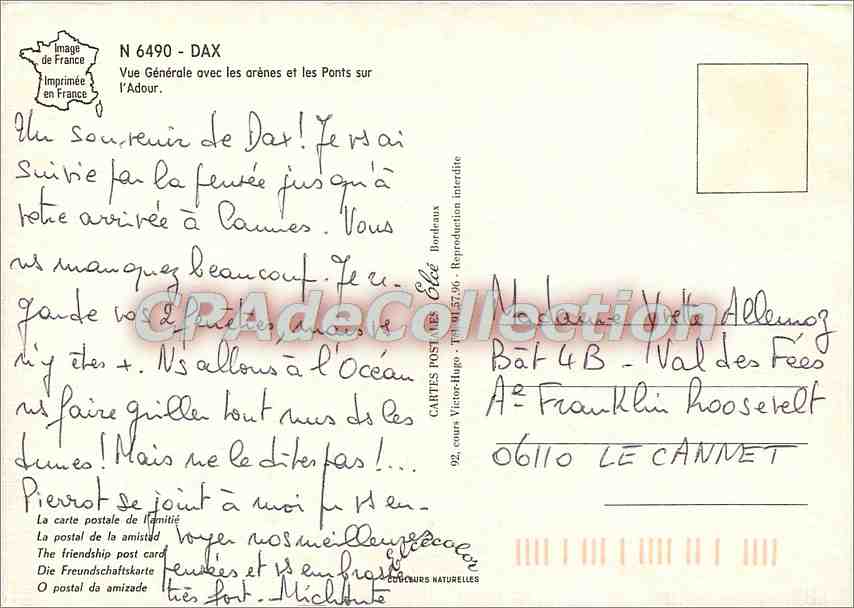 Image
de France
Imprimée
en France
N 6490 - DAX
Vue Générale avec les arènes et les Ponts sur
l'Adour.
Un souvenir de Dax! Je vs ai
suivie par la pensée jusqu'à
votre arrivée à Cannes. Vous
ns manquez beaucoup. Je re-
garde vos 2 fenêtres, mais
n'y êtes +. Ns allons à l'Océan
ns faire griller tout nus ds les
dunes! Mais ne le dites pas!...
Pierrot se joint à moi pr vs en-
voyer nos meilleures
pensées et vs embrasse
très fort.
La carte postale de l'amitié
La postal de la amistad
The friendship post card
Die Freundschaftskarte
O postal da amizade
CARTES POSTALES Elcé Bordeaux
92, cours Victor-Hugo - Tél. 91.57.96 - Reproduction interdite
Elcécolor
COULEURS NATURELLES
CPAdeCollection
Madame Yvette Allemoz
Bât 4B - Val des Fées
Ae Franklin Roosevelt
06110 LE CANNET